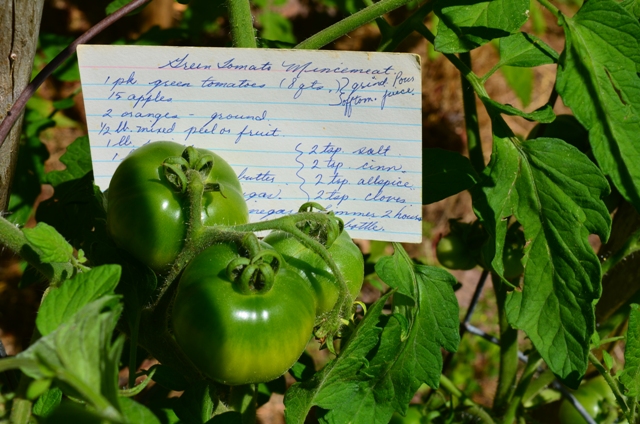 Green Tomato Mincemeat
1 pk. green tomatoes (8 qts.) grind Pour
15 apples off tom. juice.
2 oranges - ground
1/2 lb. mixed peel or fruit
1 lb. 2 tsp. salt
2 tsp. cinn.
butter 2 tsp. allspice
2 tsp. cloves
vinegar Simmer 2 hours
bottle.